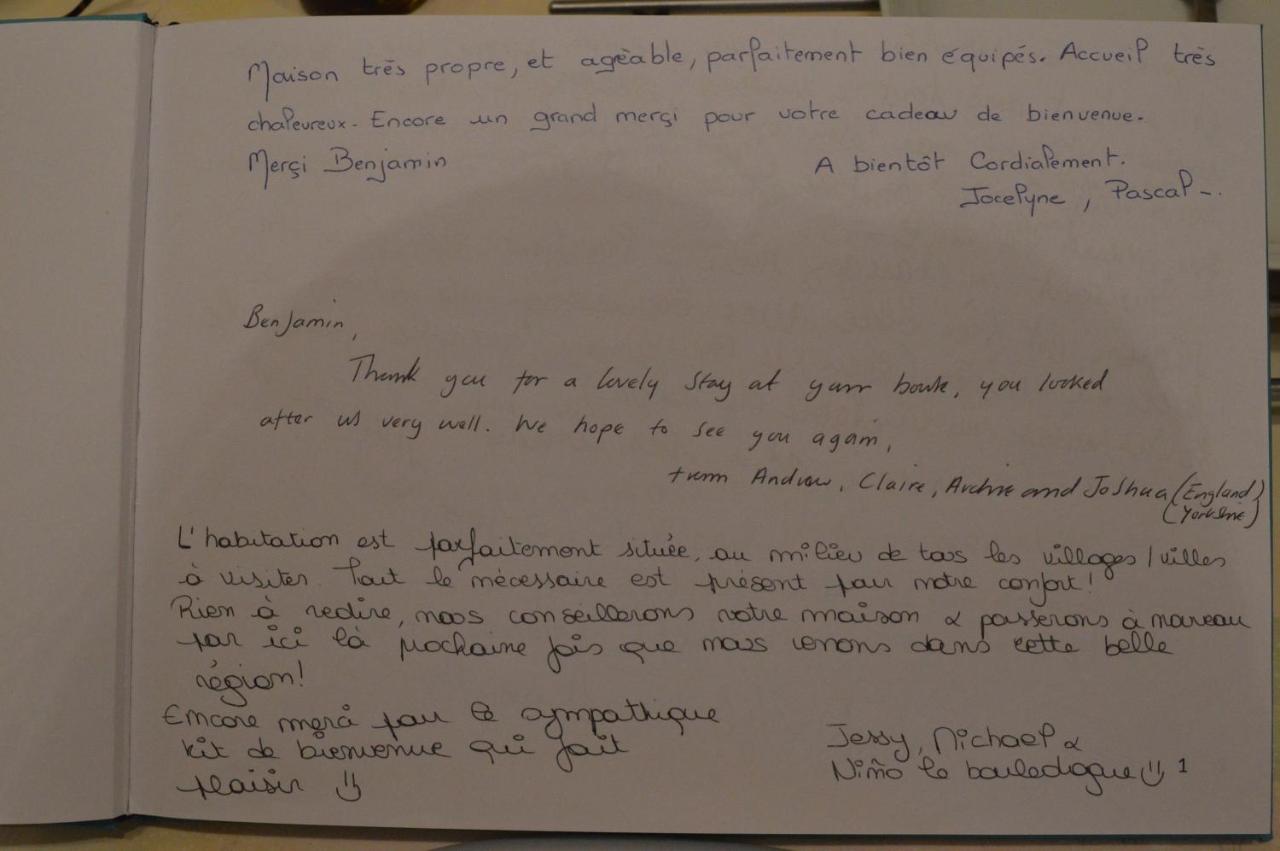 Maison très propre, et agèable, parfaitement bien équipés. Accueil très
chaleureux. Encore un grand merçi pour votre cadeau de bienvenue.
Merçi Benjamin
A bientôt Cordialement.
Jocelyne, Pascal -.
Benjamin,
Thank you for a lovely stay at your house, you looked
after us very well. We hope to see you again,
from Andrew, Claire, Archie and Joshua (England)
(Yorkshire)
L'habitation est parfaitement située, au milieu de tous les villages/villes
à visiter. Tout le nécessaire est présent pour notre confort!
Rien à redire, nous conseillerons votre maison & passerons à nouveau
par ici là prochaine fois que nous venons dans cette belle
région!
Encore merci pour le sympathique
kit de bienvenue qui fait
plaisir :)
Jessy, Michael &
Niño le bouledogue :) 1